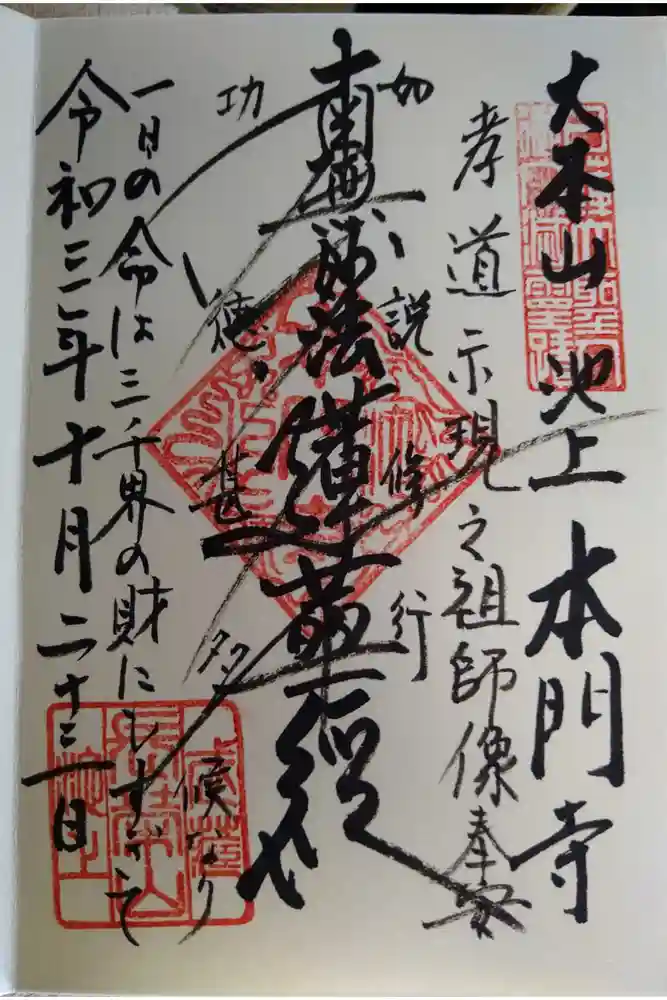 大本山 池上 本門寺
孝道示現之祖師像奉安
如説修行
南無妙法蓮華経
功徳甚多
一日の命は三千界の財にもすぎて
候なり
令和三年十月二十二日
長榮山